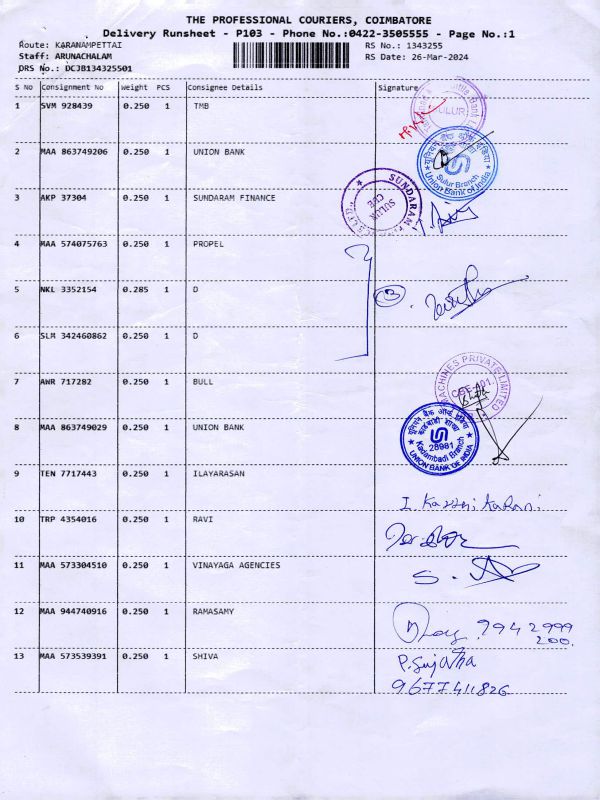 THE PROFESSIONAL COURIERS, COIMBATORE
Delivery Runsheet - P103 - Phone No.:0422-3505555 - Page No.:1
Route: KARANAMPETTAI RS No.: 1343255
Staff: ARUNACHALAM RS Date: 26-Mar-2024
DRS No.: DCJB134325501
S No Consignment No Weight PCS Consignee Details Signature
1 SVM 928439 0.250 1 TMB
SULUR
2 MAA 863749206 0.250 1 UNION BANK
Sulur Branch
Union Bank of India
3 AKP 37304 0.250 1 SUNDARAM FINANCE
SUNDARAM
SULUR
CBE
4 MAA 574075763 0.250 1 PROPEL
5 NKL 3352154 0.285 1 D
3
6 SLM 342460862 0.250 1 D
7 AWR 717282 0.250 1 BULL
MACHINES PRIVATE LIMITED
8 MAA 863749029 0.250 1 UNION BANK
28981
Kadambadi Branch
UNION BANK OF INDIA
9 TEN 7717443 0.250 1 ILAYARASAN
10 TRP 4354016 0.250 1 RAVI
11 MAA 573304510 0.250 1 VINAYAGA AGENCIES
12 MAA 944740916 0.250 1 RAMASAMY
9942999
200.
13 MAA 573539391 0.250 1 SHIVA
P. Sujatha
9677411826